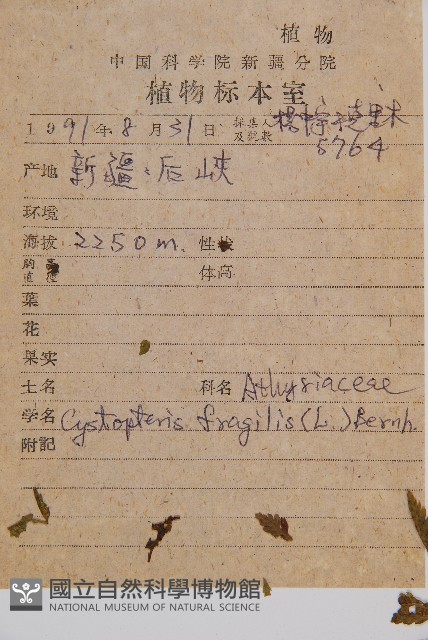 植物
中国科学院新疆分院
植物标本室
1991年8月31日 採集人及號數
5764
产地 新疆:后峡
环境
海拔 2250m. 性状
胸高直徑 体高
葉
花
果实
土名 科名 Athyriaceae
学名 Cystopteris fragilis (L.) Bernh.
附記
國立自然科學博物館
NATIONAL MUSEUM OF NATURAL SCIENCE